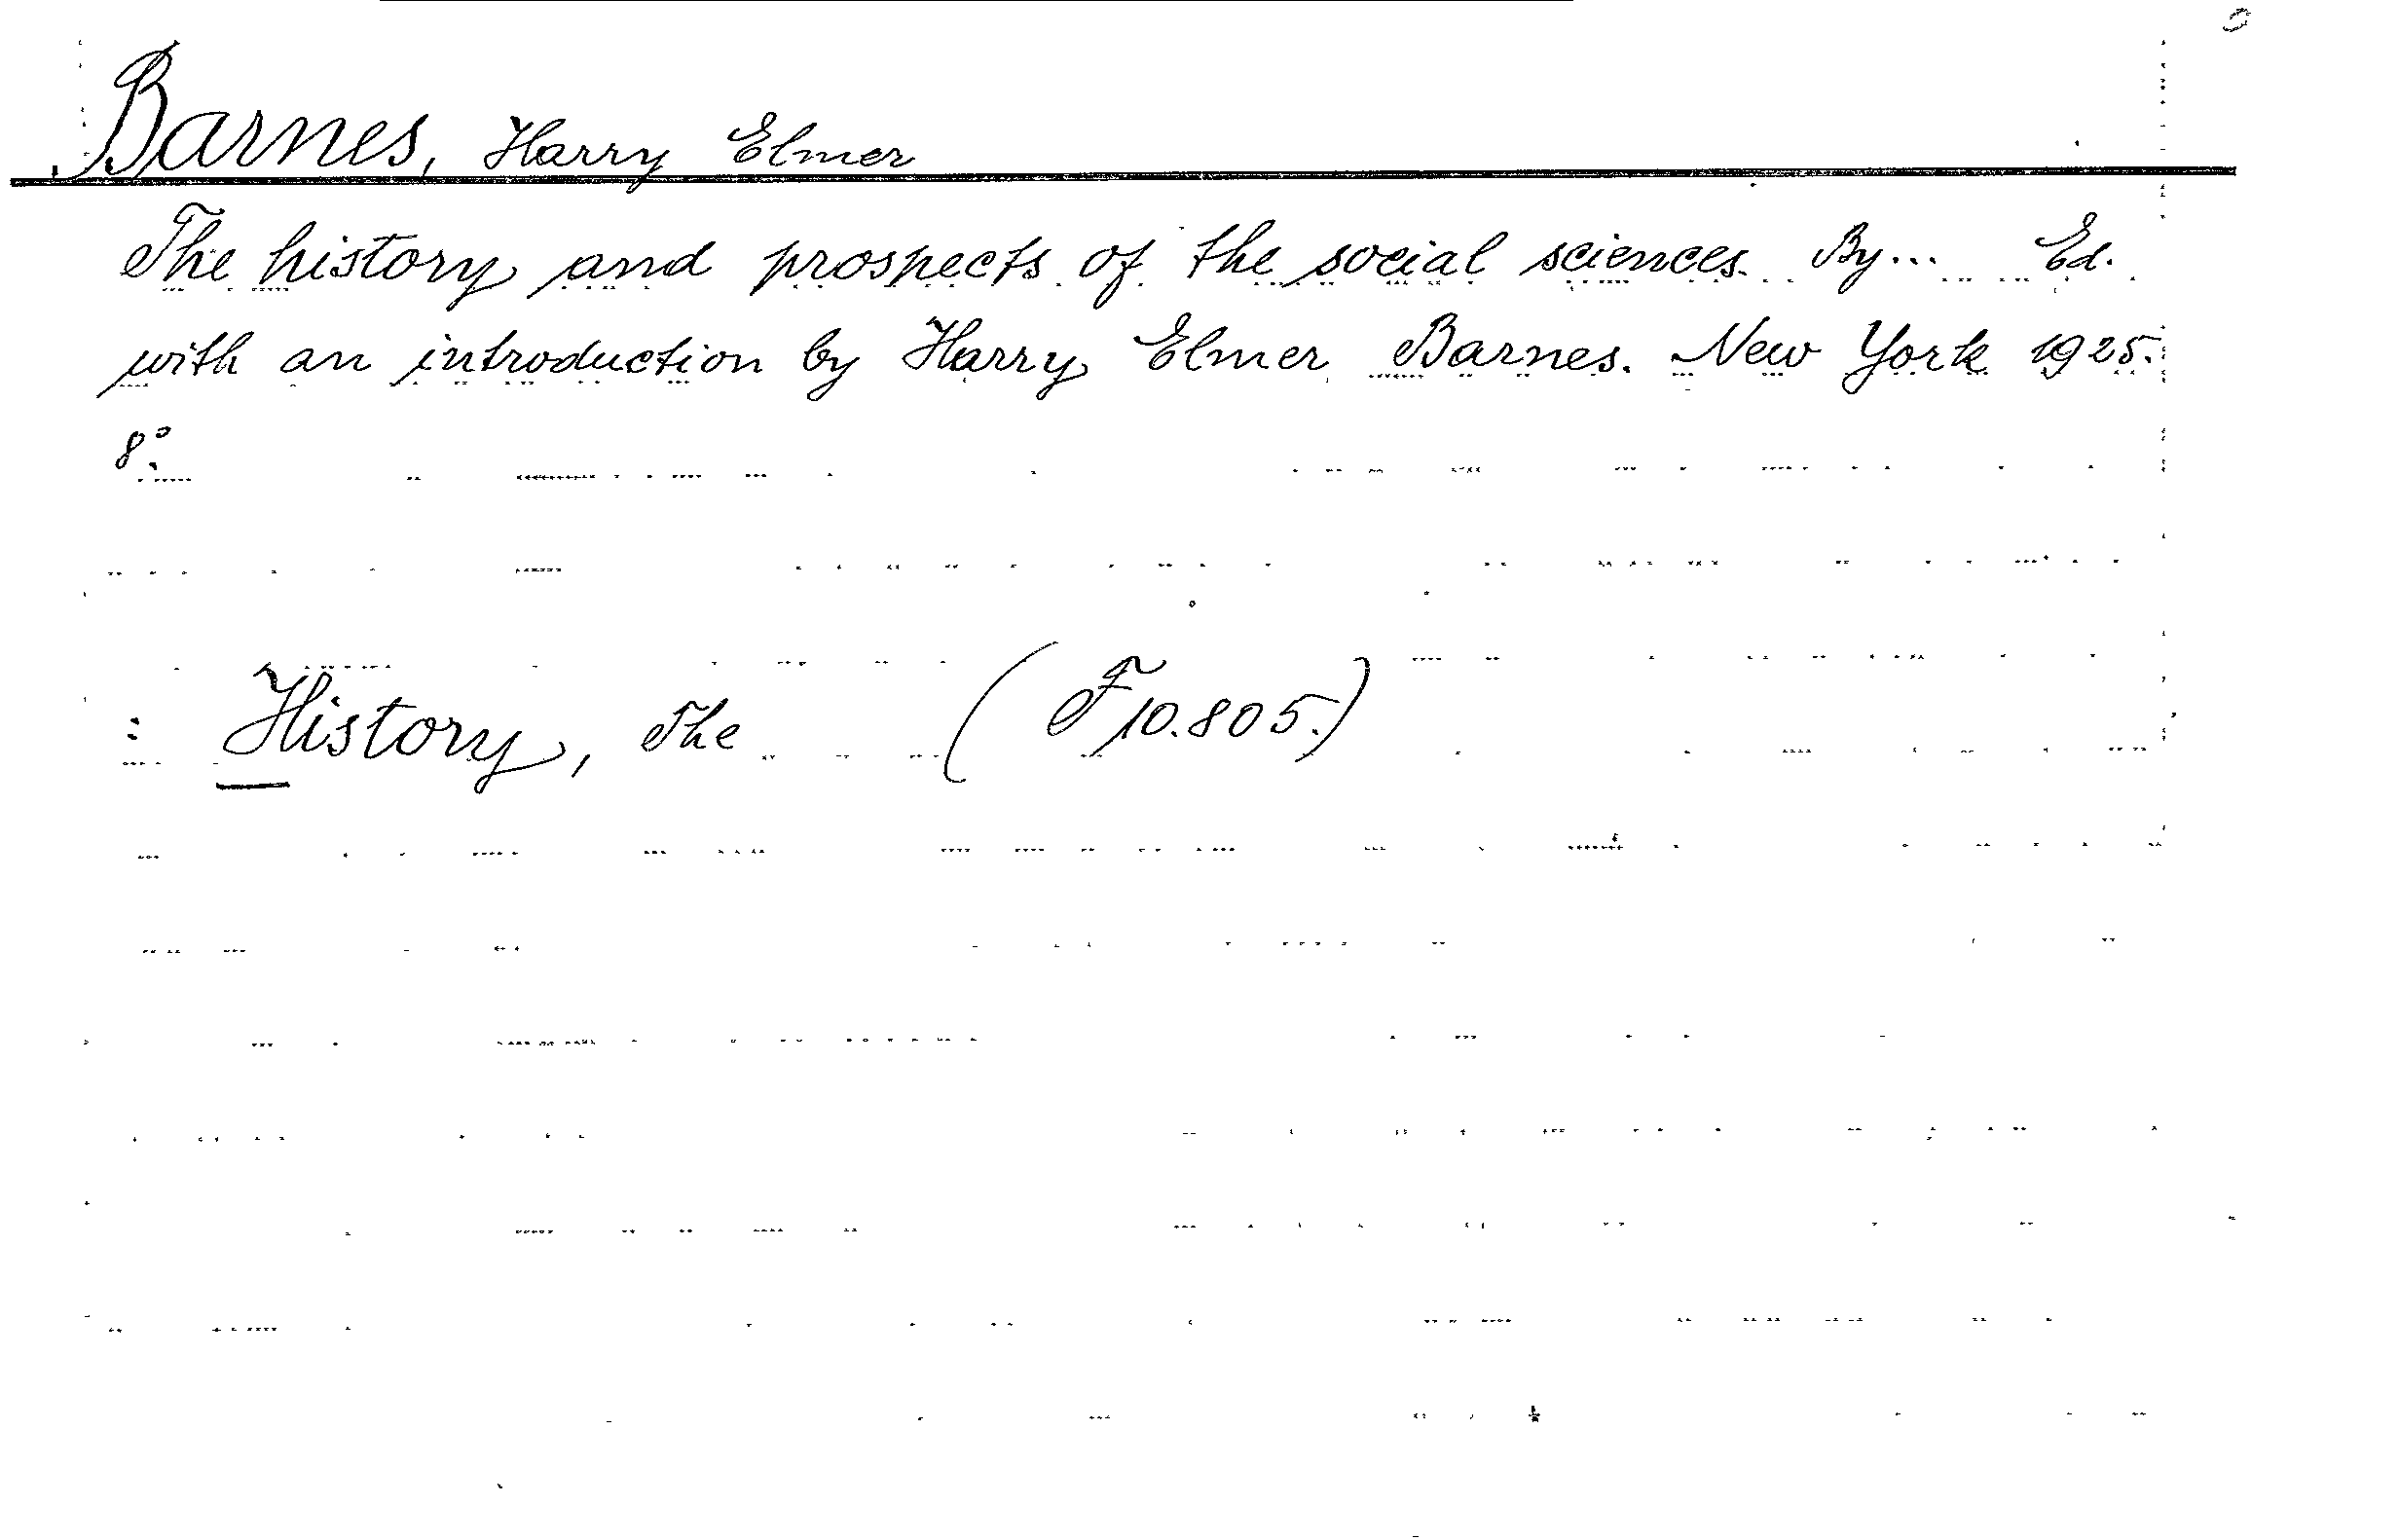 Barnes, Harry Elmer
The history and prospects of the social sciences. By... Ed.
with an introduction by Harry Elmer Barnes. New York 1925.
8°.
: History, The (F10.805.)